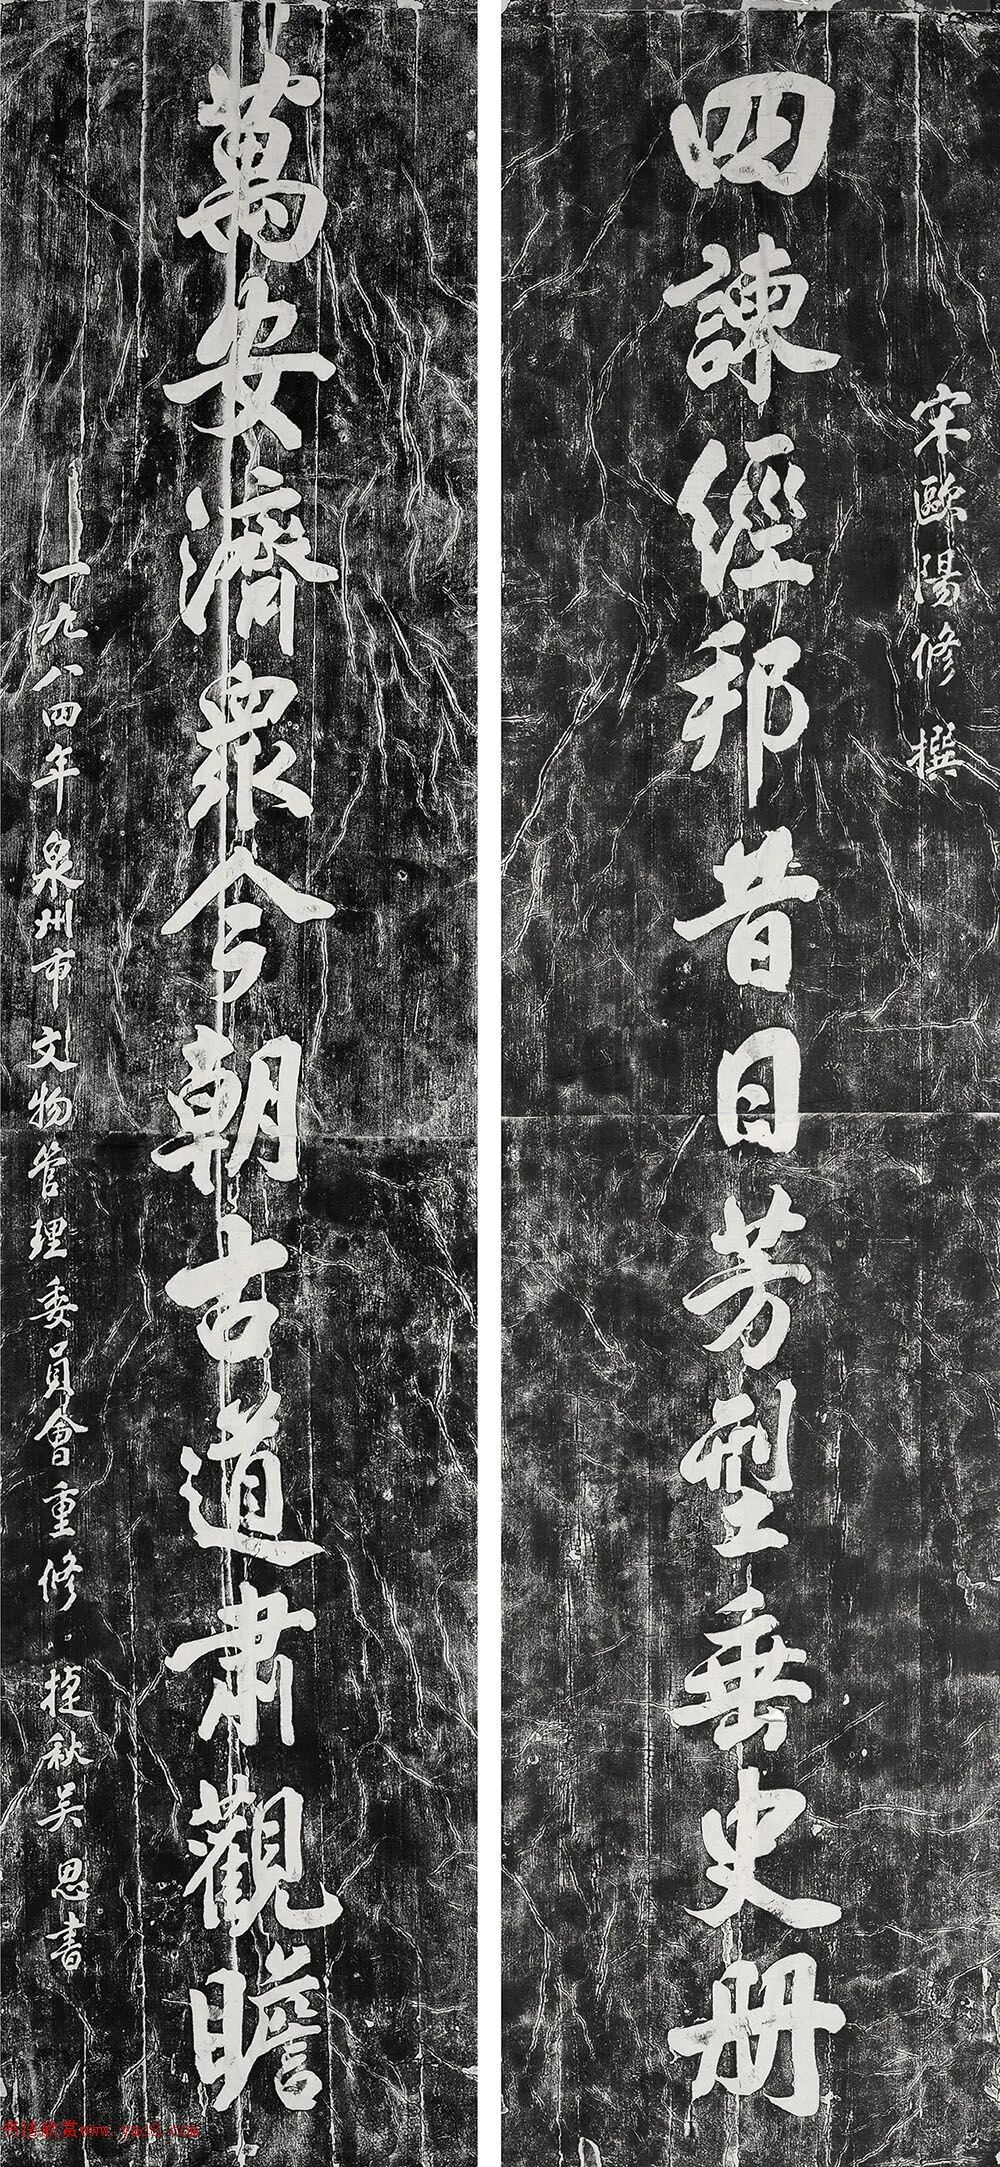 宋歐陽修撰
四諫經邦昔日芳型垂史册
萬安濟衆今朝古道肅觀瞻
一九八四年泉州市文物管理委員會重修 捷秋吴 思書